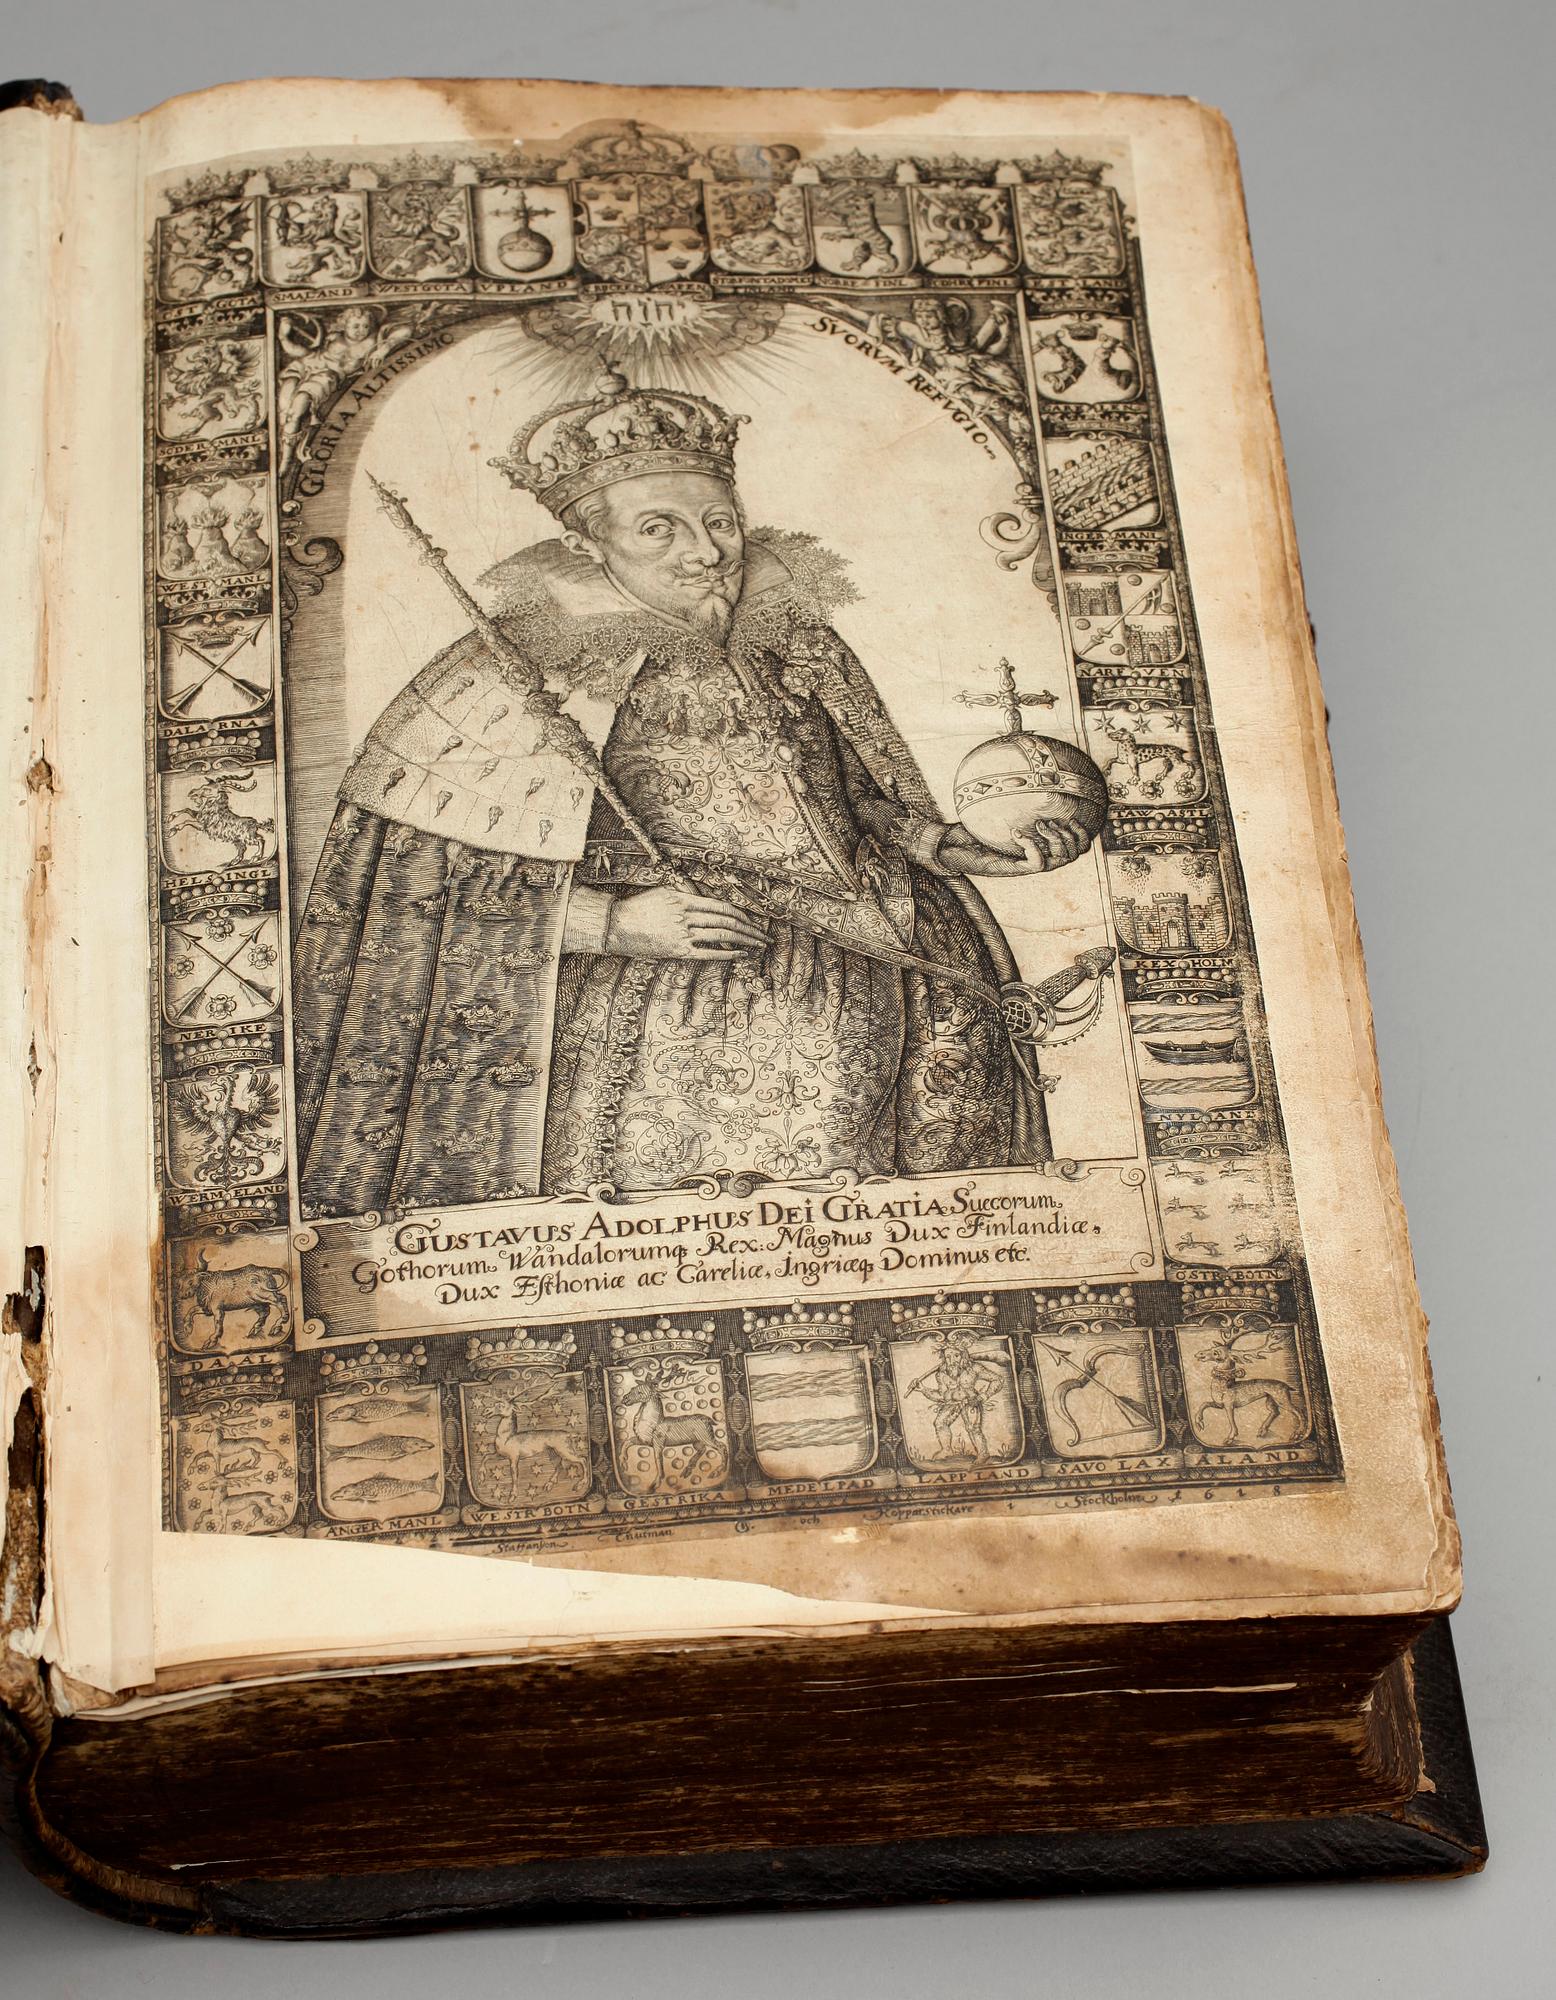 SMALAND WESTGOTA VPLAND
FINLAND
יהוה
GLORIA ALTISSIMO SVORVM REFVGIO
SVDER MANL
WEST MANL
DALA RNA
HELS INGL
NER IKE
WERM ELAND
DA AL
NGER MANL
NARF VEN
TAW ASTL
KEX HOLM
NYL AND
OSTR BOTN
GUSTAVUS ADOLPHUS DEI GRATIA Suecorum
Gothorum Wandalorumq Rex. Magnus Dux Finlandiæ,
Dux Esthoniæ ac Careliæ, Ingriæq Dominus etc.
ANGER MANL WESTR BOTN GESTRIKA MEDELPAD LAPP LAND SAVO LAX ÅLAND
Staffanson Trutman G. och Kopparstickare i Stockholm 1618